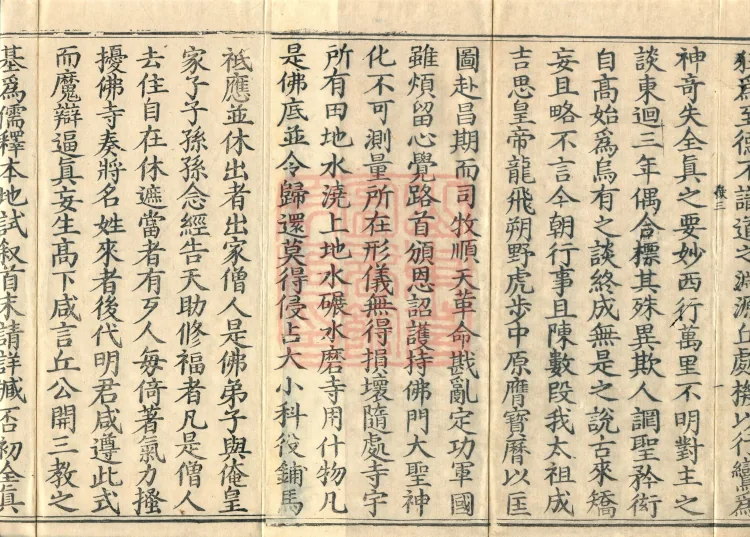 爲至德不謂道之淵源丘處機以行鸞爲
後三
神奇失全眞之要妙西行萬里不明對主之
談東迴三年偶合標其殊異欺人誷聖矜衒
自高始爲烏有之談終成無是之說古來矯
妄且略不言今朝行事且陳數段我太祖成
吉思皇帝龍飛朔野虎步中原膺寶曆以匡
圖赴昌期而司牧順天革命戡亂定功軍國
雖煩留心覺路首頒恩詔護持佛門大聖神
化不可測量所在形儀無得損壞隨處寺宇
所有田地水澆上地水碾水磨寺用什物凡
是佛底並令歸還莫得侵占大小科役鋪馬
祗應並休出者出家僧人是佛弟子與俺皇
家子子孫孫念經告天助修福者凡是僧人
去住自在休遮當者有歹人每倚著氣力搔
擾佛寺奏將名姓來者後代明君咸遵此式
而魔辯逼眞妄生髙下咸言丘公開三教之
基爲儒釋本地試叙首末請詳臧否初全眞